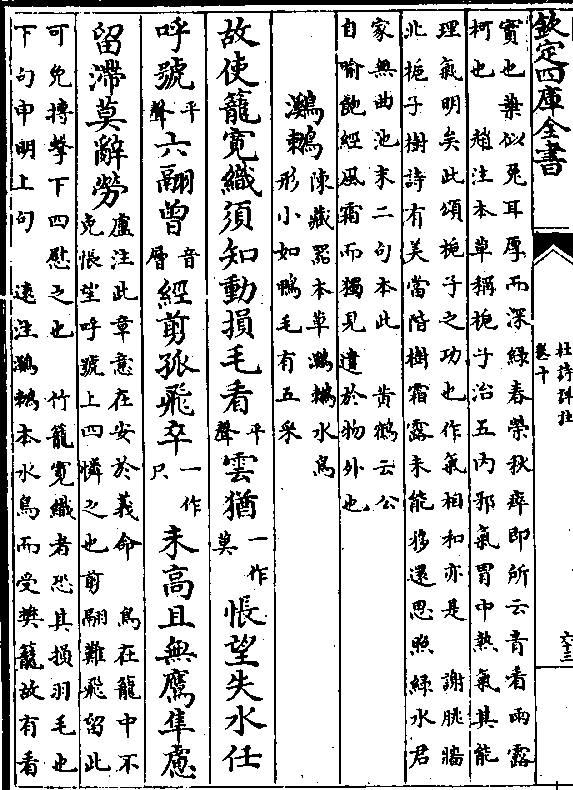 欽定四庫全書
杜詩詳註
卷十
六十三
實也葉似兔耳厚而深綠春榮秋瘁即所云青看雨露
柯也　趙注本草稱梔子治五內邪氣胃中熱氣其能
理氣明矣此頌梔子之功也作氣相和亦是　謝朓牆
北梔子樹詩有美當階樹霜露未能移還思照綠水君
家無曲池末二句本此　黃鶴云公
自喻飽經風霜而獨見遺於物外也
鸂鶒陳藏器本草鸂鶒水鳥
形小如鴨毛有五采
故使籠寬織須知動損毛看平聲雲猶一作莫悵望失水任
呼號平聲六翮曾音層經剪孤飛卒一作只未高且無鷹隼慮
留滯莫辭勞盧注此章意在安於義命　鳥在籠中不
免悵望呼號上四憐之也剪翮難飛留此
可免搏擊下四慰之也　竹籠寬織者恐其損羽毛也
下句申明上句　遠注鸂鶒本水鳥而受樊籠故有看